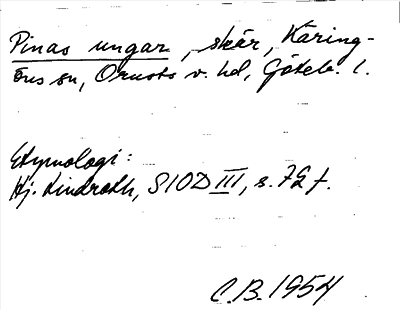 Pinas ungar, skär, Käring-
öns sn, Orusts v. hd, Göteb. l.
Etymologi:
Hj. Lindroth, SIOD III, s. 72 f.
C.B. 1954